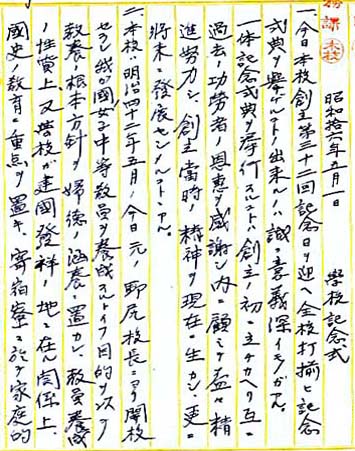 務課 本校
昭和拾六年五月一日 學校記念式
一、今日本校創立第三十二回記念日ヲ迎ヘ全校打揃ヒ記念
式典ヲ擧ゲルノ出来ルノハ誠ニ意義深イモノガアル。
一体記念式典ヲ擧行スルノハ創立ノ初ニ立チカヘリ互ニ
過去ノ功勞者ノ恩恵ヲ感謝シ内ニ顧ミテ益々精
進努力シ、創立當時ノ精神ヲ現在ニ生カシ、更ニ
將来ニ發展センメルコトニアル。
二、本校ハ明治四十二年五月ノ今日元ノ即尻校長ニヨリ開校
セラレ我ガ國女子中等教員ヲ養成スルトイフ目的ヲ以テ
教養ノ根本方針ヲ婦徳ノ涵養ニ置カレ、教員養成
ノ性質上又學校ガ建國發祥ノ地ニ在ル関係上、
國史教育ニ重点ヲ置キ寄宿寮ニ於テ家庭的